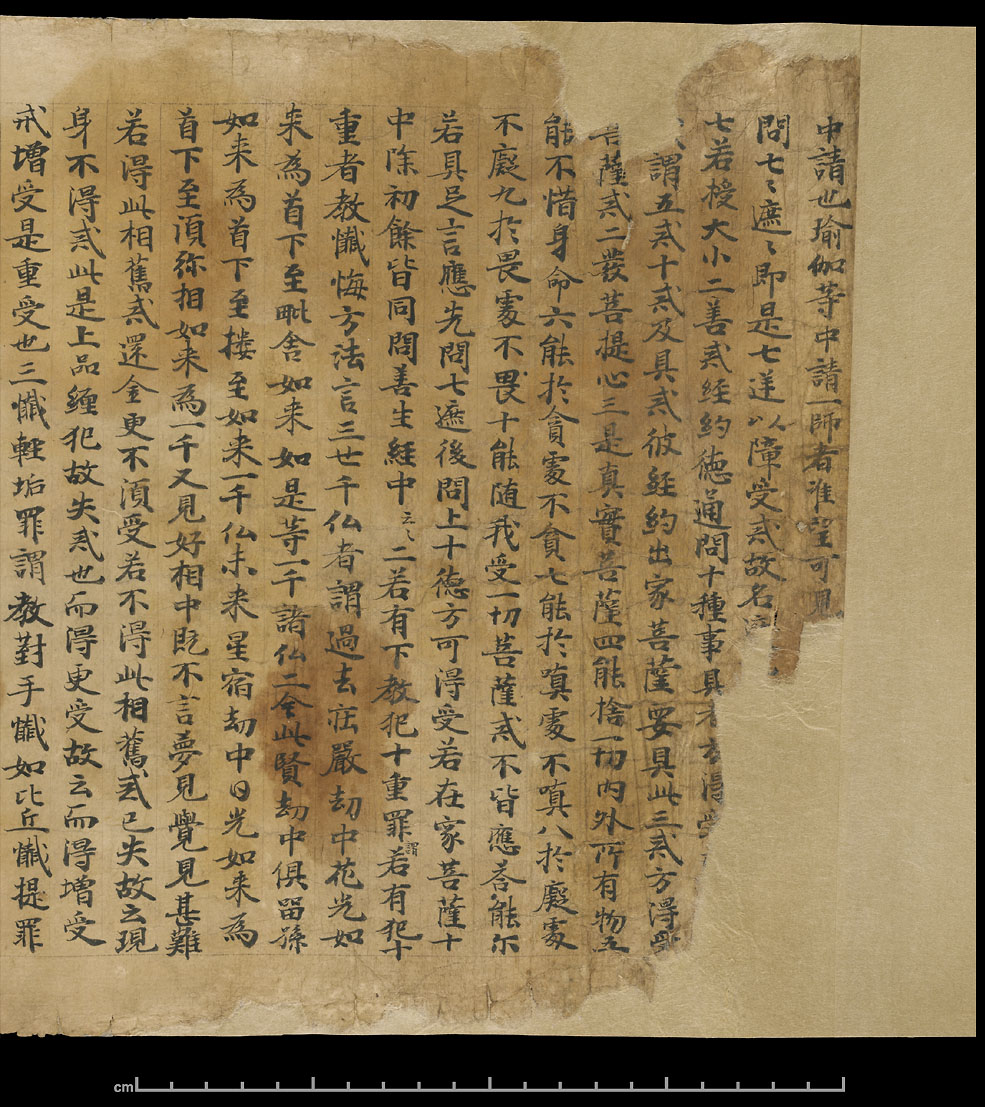 中請也瑜伽等中請一師者准望可見
問七〻遮〻即是七逆以障受戒故名
七若授大小二善戒経約徳通問十種事具者方得受
謂五戒十戒及具戒彼経約出家菩薩要具此三戒方得受
菩薩戒二發菩提心三是真實菩薩四能捨一切内外所有物五
能不惜身命六能於貪處不貪七能於嗔處不嗔八於癡處
不癡九於畏處不畏十能随我受一切菩薩戒不皆應荅能尓
若具足言應先問七遮後問上十徳方可得受若在家菩薩十
中除初餘皆同問善生経中云〻二若有下教犯十重罪謂若有犯十
重者教懺悔方法言三世千仏者謂過去莊嚴劫中花光如
来為首下至毗舍如来如是等一千諸仏二令此賢劫中俱留孫
如来為首下至搂至如来一千仏未来星宿劫中日光如来為
首下至湏弥相如来為一千又見好相中既不言夢見覺見甚難
若得此相舊戒還全更不湏受若不得此相舊戒已失故云現
身不得戒此是上品纏犯故失戒也而得更受故云而得増受
戒増受是重受也三懺軽垢罪謂教對手懺如比丘懺提罪